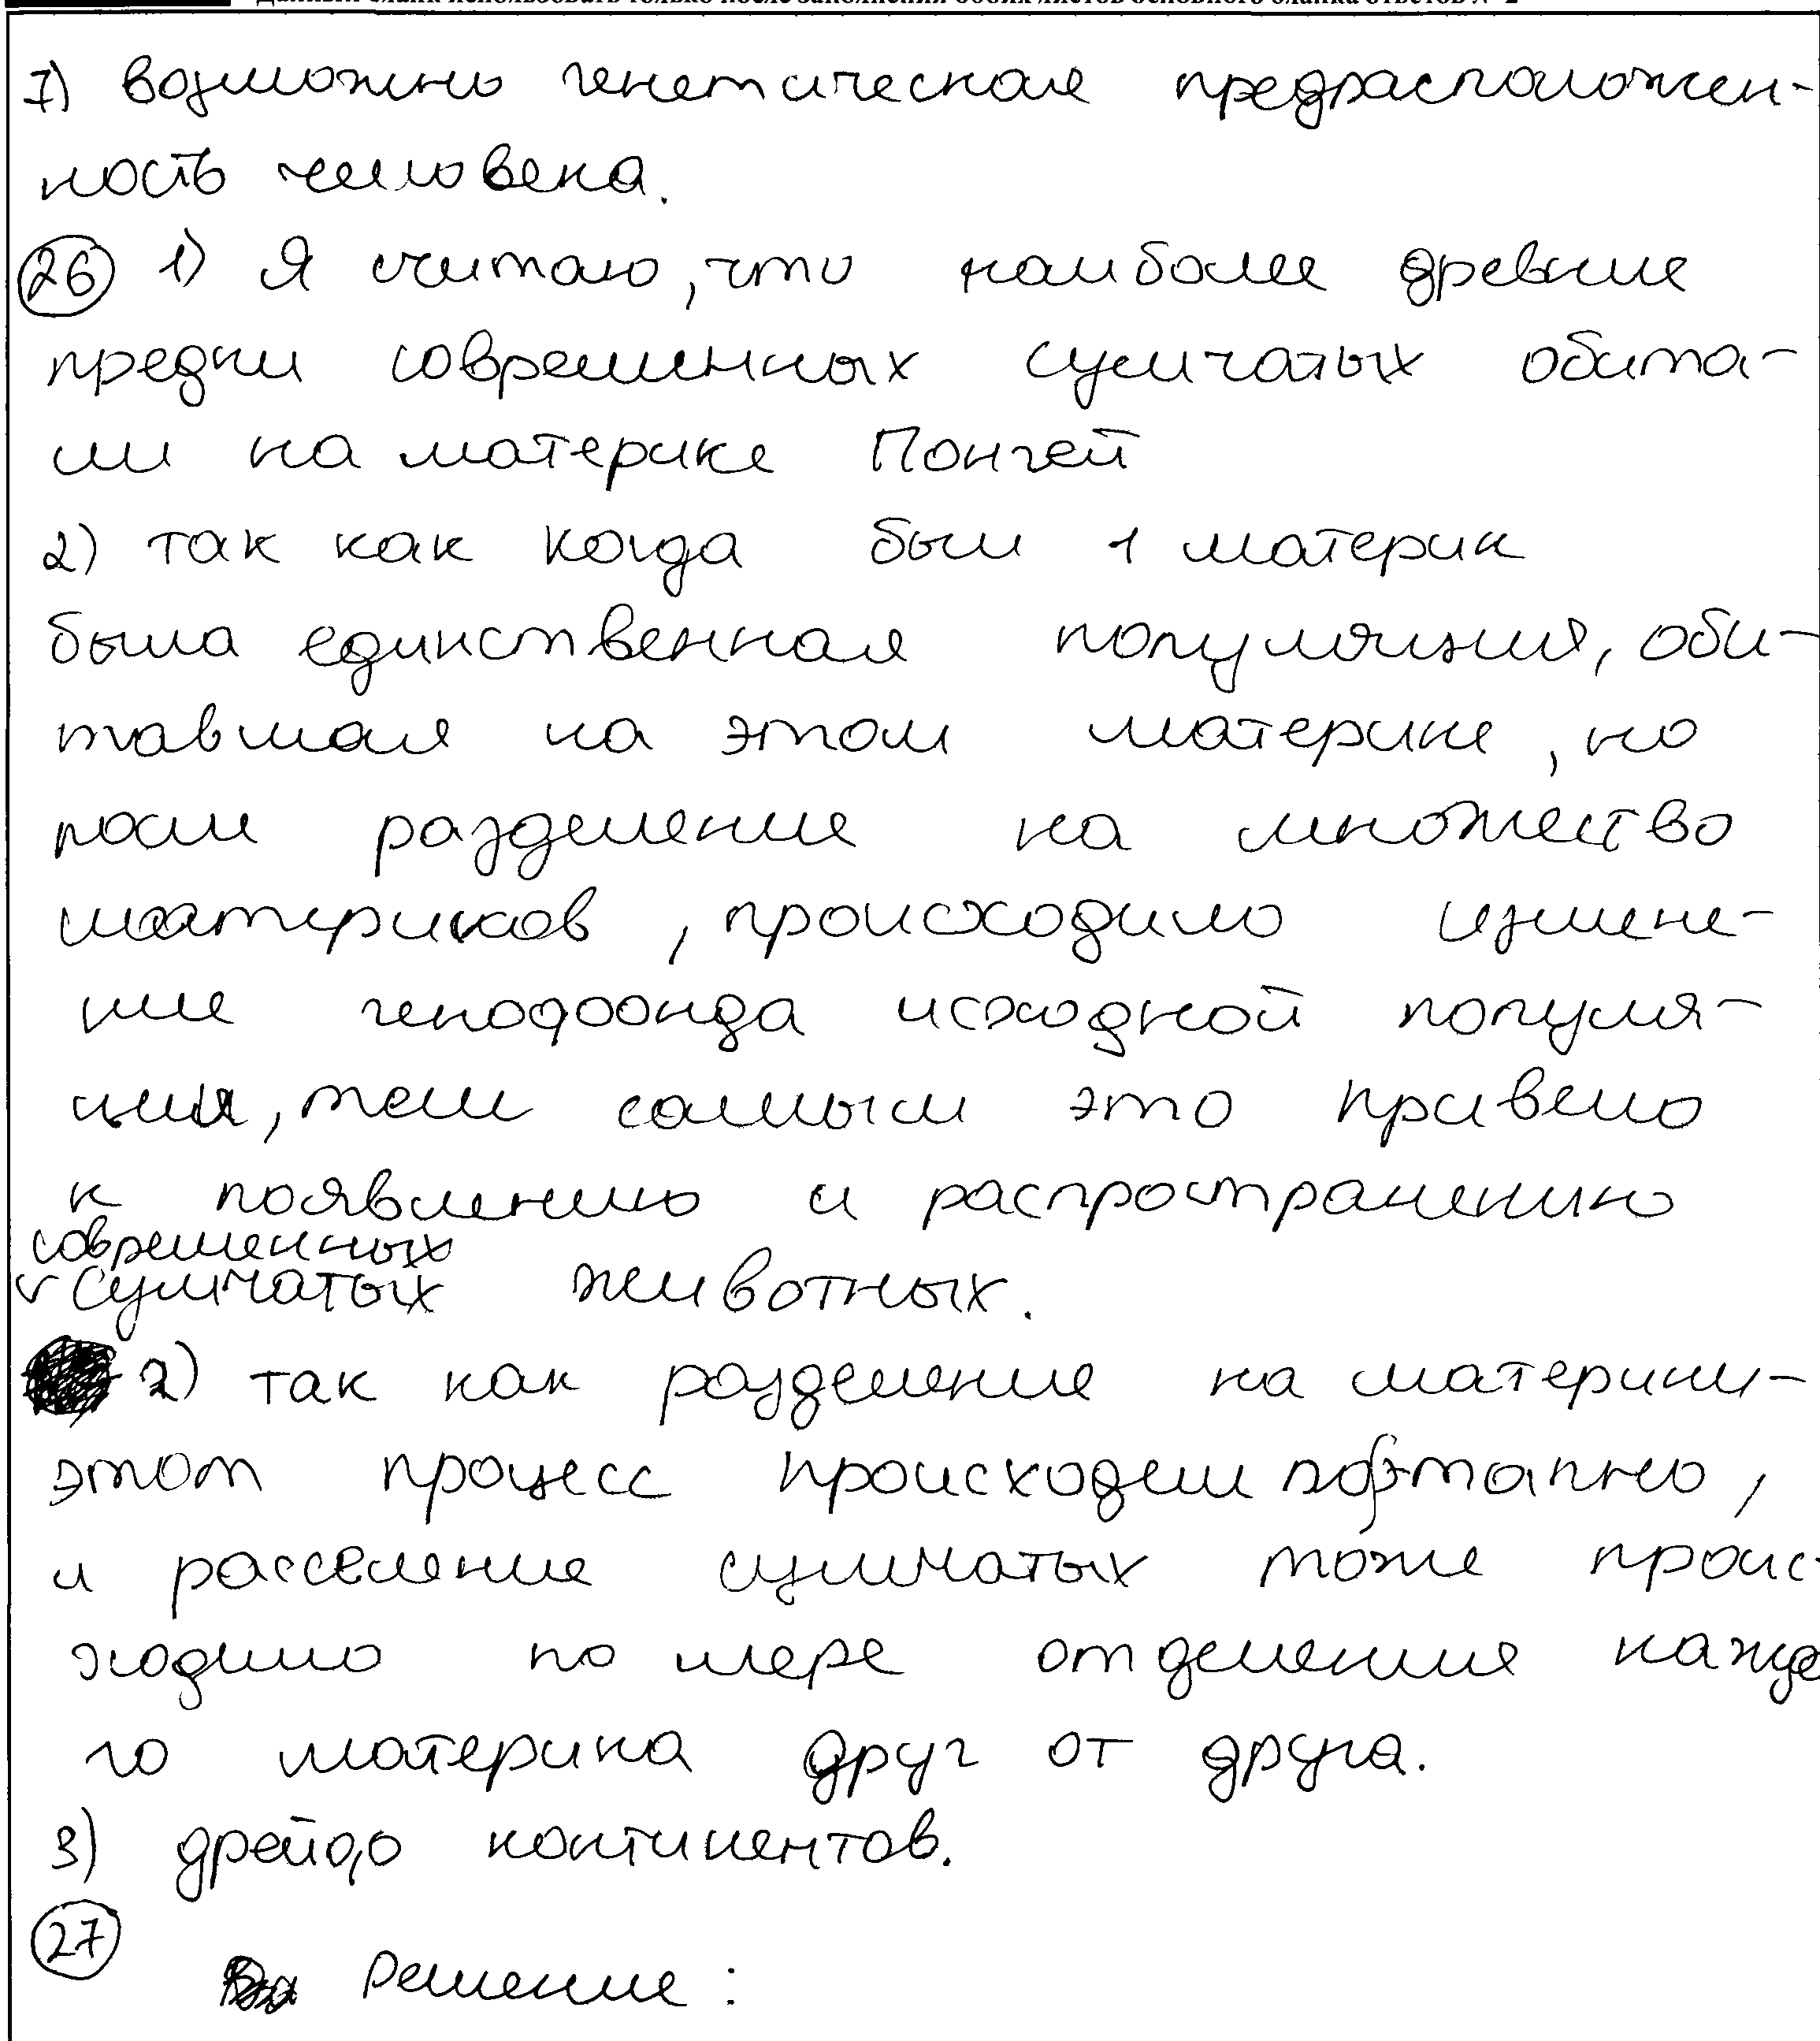 Данный бланк использовать только после заполнения обоих листов основного бланка ответов № 2
7) возможно генетическая предрасположен-
ность человека.
26 1) Я считаю, что наиболее древние
предки современных сумчатых обита-
ли на материке Понгей
2) так как когда был 1 материк
была единственная популяция, оби-
тавшая на этом материке, но
после разделение на множество
материков, происходило измене-
ние генофонда исходной популя-
ции, тем самым это привело
к появлению и распространению
современных
√ Сумчатых животных.
2) так как разделение на материки-
этот процесс происходил поэтапно,
и расселение сумчатых тоже проис-
ходило по мере отделение каждо
го материка друг от друга.
3) дрейф континентов.
27
Решение: